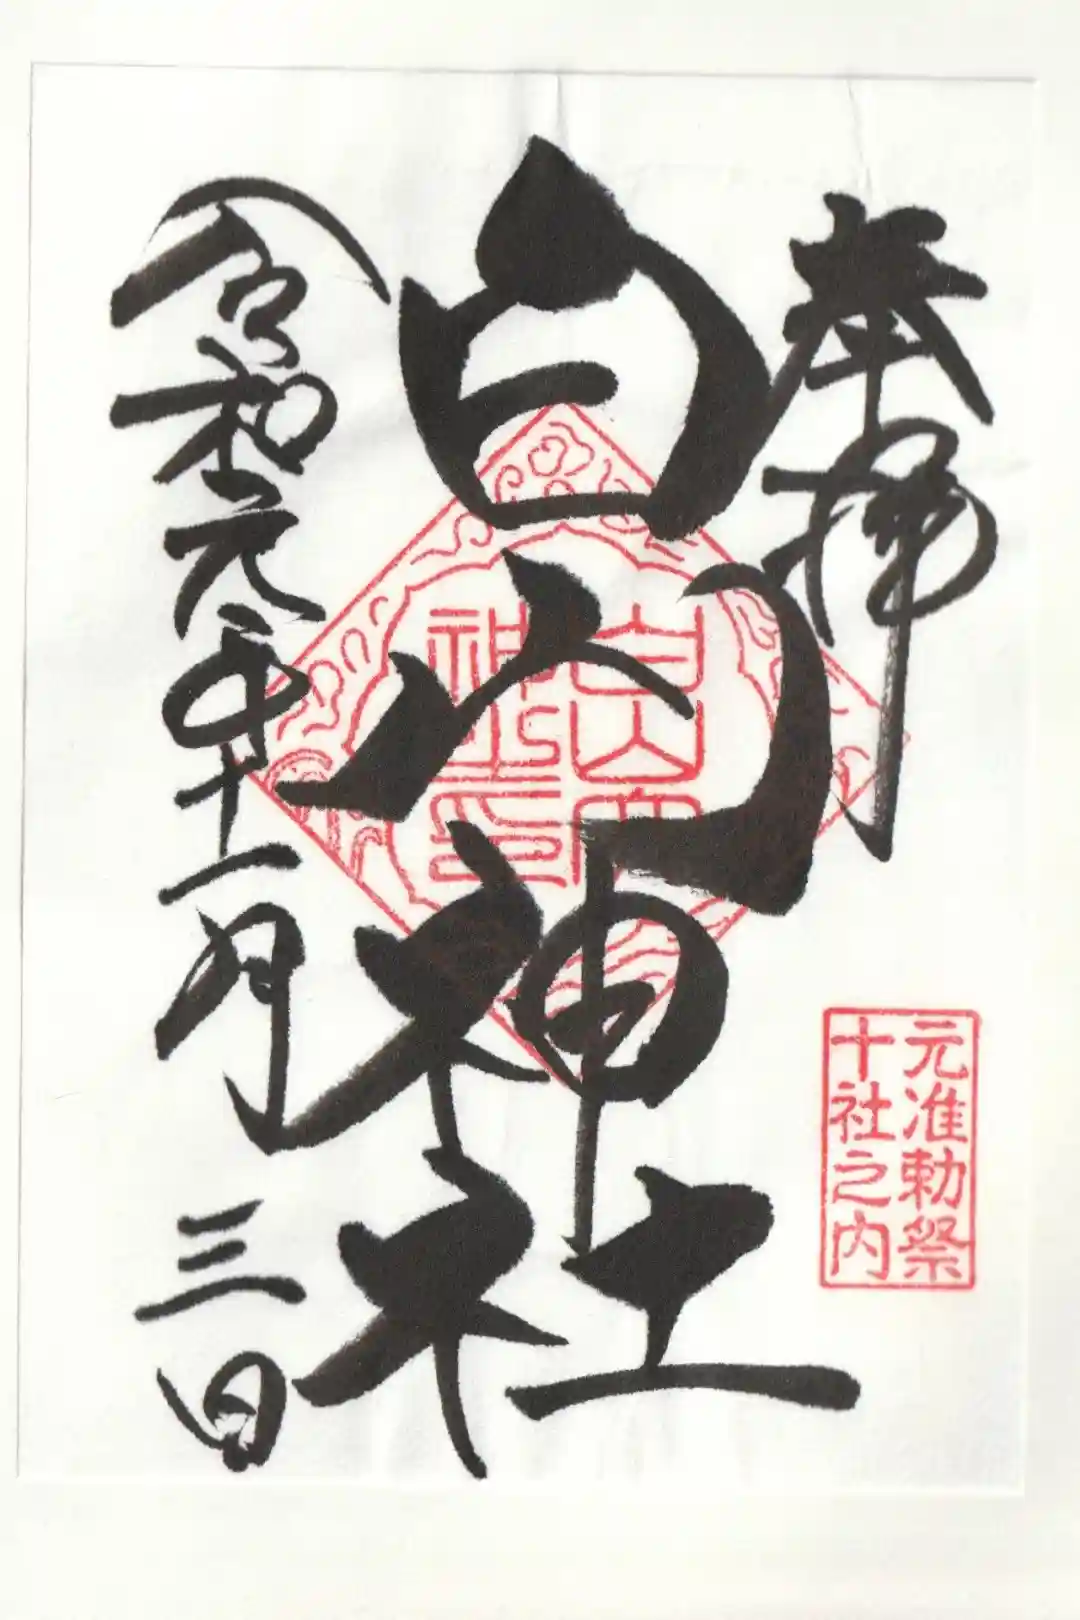 奉拝
白山神社
令和元年十一月三日
元准勅祭
十社之内
白山
神社印